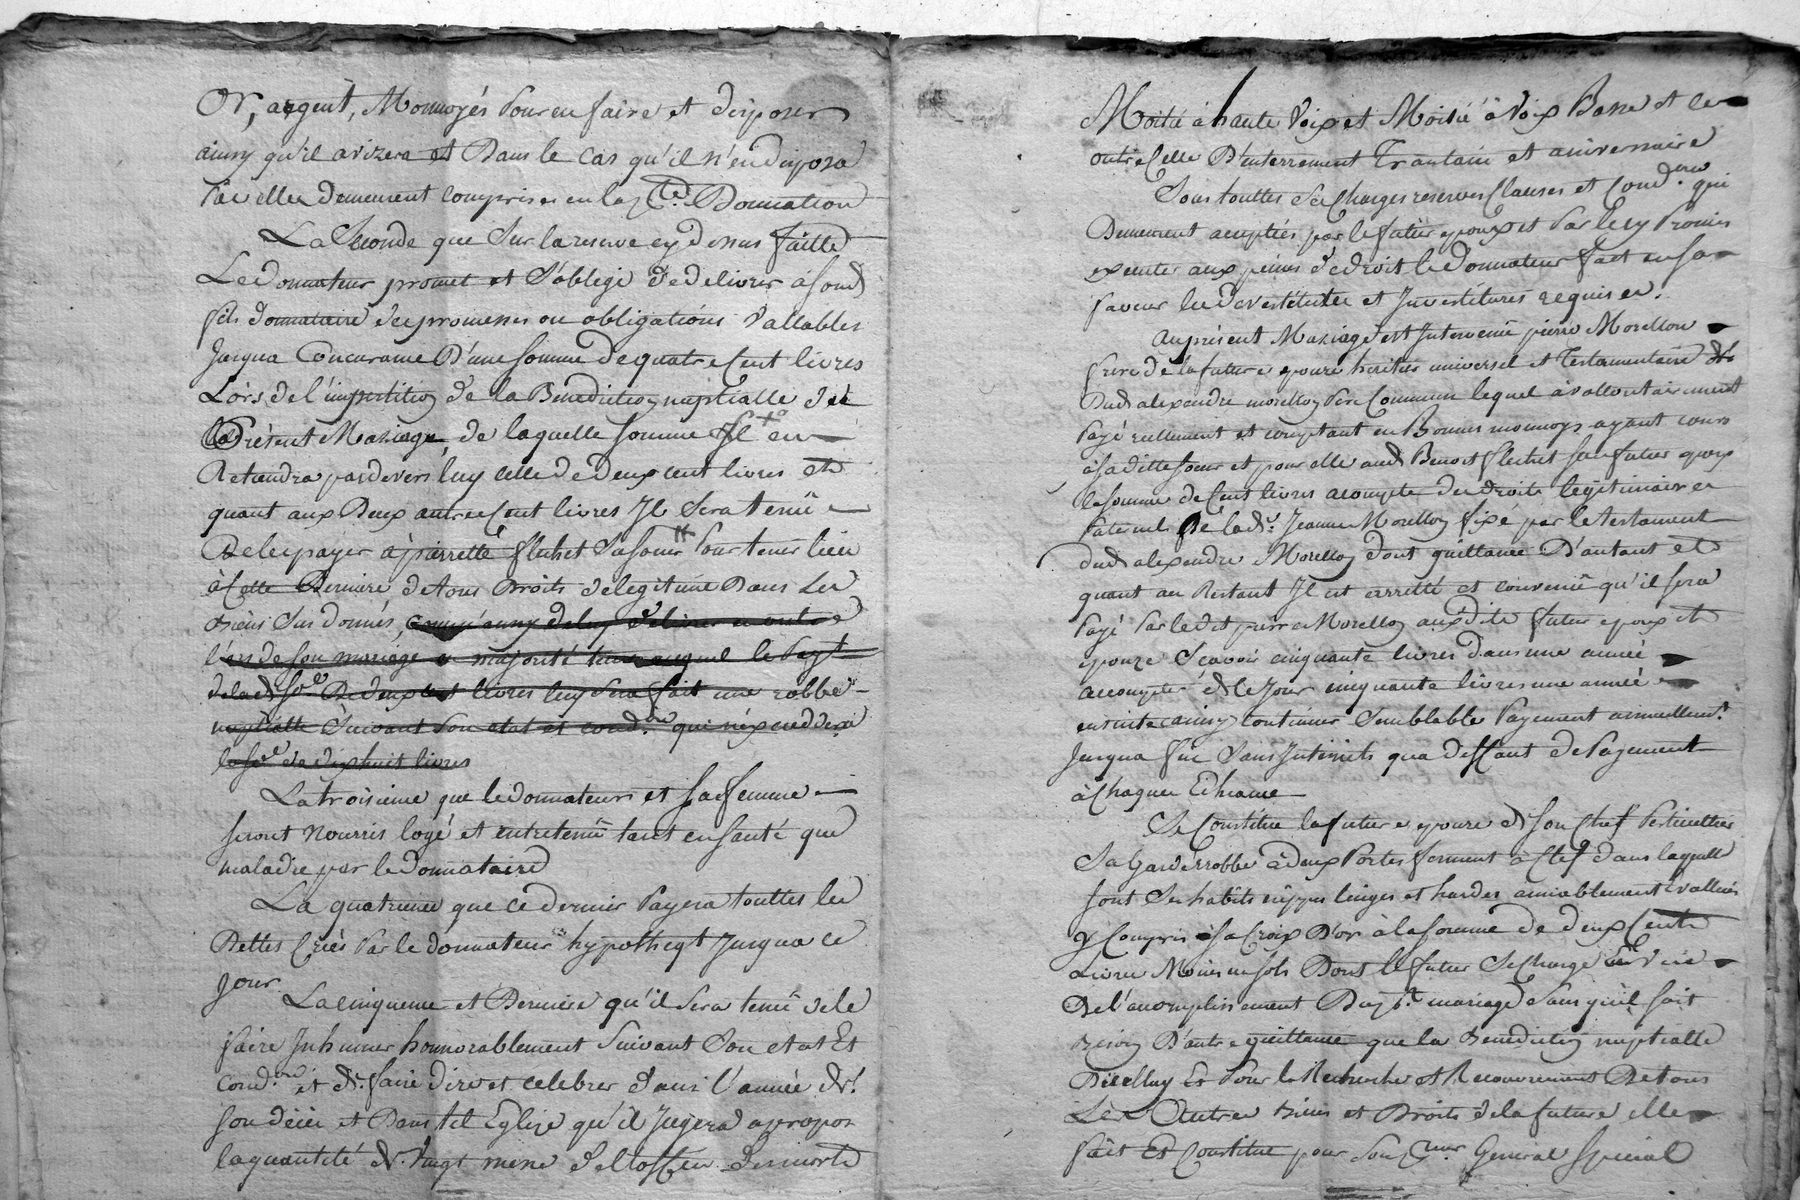 Or, argent, Monnoyés Pour en faire et disposer
ainsy qu'il avizera et Dans le cas qu'il n'en disposa
elles demeurent comprises en la Donnation
La Seconde que Sur la reserve cy dessus faitte
Le donnateur promet et S'oblige de delivrer à sond
fils donnataire des promesses ou obligations Vallables
Jusqua Concurance D'une Somme de quatre Cent livres
Lors de l'impartition de la Benediction nuptialle
Présent Mariage, de laquelle somme Il en
Retiendra pardevers luy celle de deux cent livres et
quant aux Deux autres Cent livres Il Sera tenü
De les payer à pierrette flechet Sa soeur Pour tenir lieu
à Cette Derniere de tous Droits de legitime Dans les
biens Sus donnés,
l'ors de son mariage ou majorité le Payt
De deux cent livres luy sera fait une robbe
nuptialle Suivant Son etat et cond.on qui n'expeddera
de dixhuit livres
La troisieme que le donnateur et sa femme
seront nourris logé et entretenü tant en santé que
maladie par le donnataire
La quatrieme que ce dernier Payera touttes les
Dettes Créés Par le donnateur hypotheqt Jusqua ce
Jour
La cinquieme et Derniere qu'il Sera tenü de le
faire Inhumer honnorablement Suivant Son etat Et
cond.on et de faire dire et celebrer dans l'année de
son décès et Dans tel Eglize qu'il Jugera apropos
la quantité de Vingt messe de Mortd
Moitié à haute Voix et Moitié à Voix Basse et
outre Celle D'enterrement Trantain et aniversaire
Sous touttes Ses Charges reserves Clauses et Cond.ons qui
Demeurent acceptées par le futur epoux et Par luy Promis
executer aux peines de droit le donnateur fait en sa
faveur les devestitutes et Investitures requises.
Au présent Mariage est Intervenü pierre Morellon
frere de la future epouze héritier universel et Testamentaire de
Dud alexandre morellon Pere Commun lequel à vollontairement
Payé reellement et comptant en Bonnes monnoys ayant cours
à sa ditte soeur et pour elle aud Benoit flechet son futur epoux
la somme de Cent livres acompte des droits légitimaires
Paternel De lade Jeanne Morellon fixé par le testament
dud alexandre Morellon dont quittance D'autant et
quant au Restant Il est arretté et convenü qu'il sera
Payé Par ledit pierre Morellon auxdits futur epoux et
epouze Scavoir cinquante livres dans une année
acompter de ce Jour cinquante livres une année
ensuite ainsy continuer Semblable Payement annuellemt
Jusqua fin Sans Interests qua deffaut de Payement
à Chaque Echeance
Se Constitüe la future epouze de Son Chef
Sa Garderrobbe à deux Portes fermant à Clef dans laquelle
sont Ses habits nippes linges et hardes amiablement évallués
y Compris Sa Croix D'or à la somme de deux Cent
Dont le futur Se Charge
De l'acomplissement Du pt. mariage Sans quil soit
Besoin D'autre quittance que la Benediction nuptialle
Dicelluy Et Pour la Recherche et Recouvrement De tous
Les Autres biens et Droits de la future elle
fait Et Constitue pour Son General Special